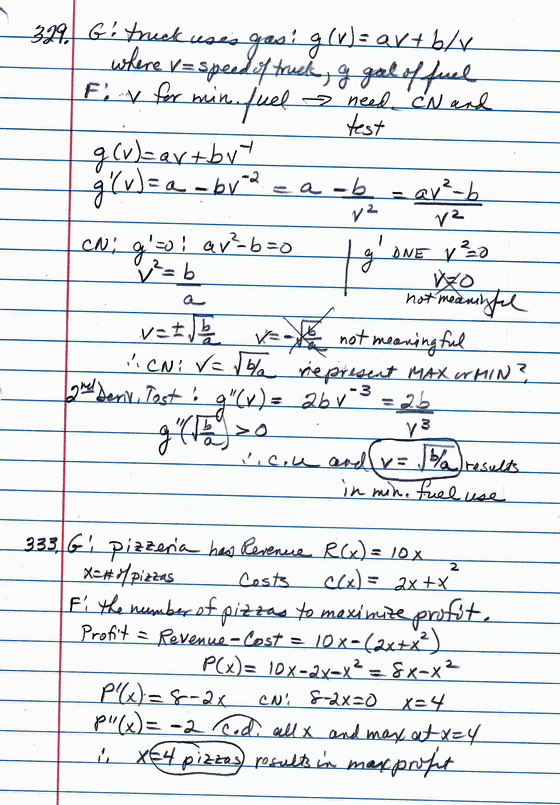 329. G: truck uses gas: g(v) = av + b/v
where v = speed of truck, g gal of fuel
F: v for min. fuel → need CN and
test
g(v) = av + bv⁻¹
g'(v) = a - bv⁻² = a - b/v² = av² - b/v²
CN: g' = 0: av² - b = 0 | g' DNE v² = 0
v² = b/a v = 0
not meaningful
v = ±√b/a v = -√b/a not meaningful
∴ CN: v = √b/a represent MAX or MIN?
2nd Deriv. Test: g''(v) = 2bv⁻³ = 2b/v³
g''(√b/a) > 0
∴ c.u and v = √b/a results
in min. fuel use
333. G: pizzeria has Revenue R(x) = 10x
x = # of pizzas Costs C(x) = 2x + x²
F: the number of pizzas to maximize profit.
Profit = Revenue - Cost = 10x - (2x + x²)
P(x) = 10x - 2x - x² = 8x - x²
P'(x) = 8 - 2x CN: 8 - 2x = 0 x = 4
P''(x) = -2 c.d. all x and max at x = 4
∴ x = 4 pizzas results in max profit